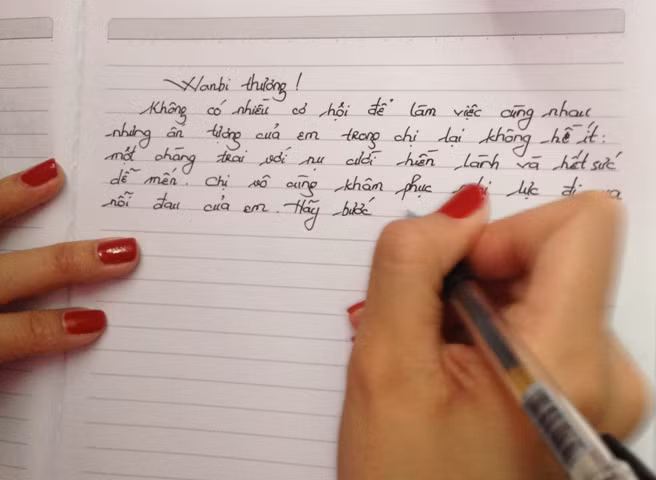 Wanbi thương!
Không có nhiều cơ hội để làm việc cùng nhau
nhưng ấn tượng của em trong chị lại không hề ít:
một chàng trai với nụ cười hiền lành và hết sức
dễ mến. Chị vô cùng khâm phục nghị lực đi qua
nỗi đau của em. Hãy bước